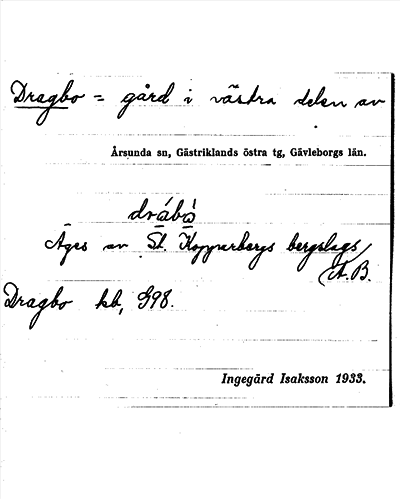 Dragbo = gård i västra delen av
Årsunda sn, Gästriklands östra tg, Gävleborgs län.
drábò
Äges av St. Kopparbergs bergslags
A.B.
Dragbo kb, G98.
Ingegärd Isaksson 1933.